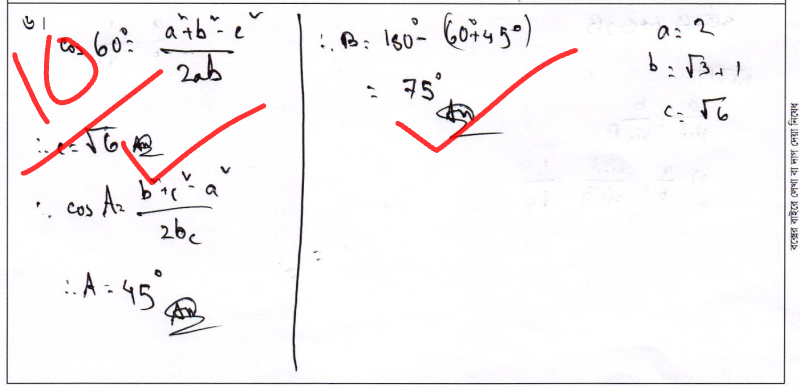 ৬।
cos 60° = (a² + b² - c²) / 2ab
10
∴ c = √6 Ans
∴ cos A = (b² + c² - a²) / 2bc
∴ A = 45°
Ans
∴ B = 180° - (60° + 45°)
= 75°
Ans
=
a = 2
b = √3 + 1
c = √6
বক্সের বাইরে লেখা বা দাগ দেয়া নিষেধ